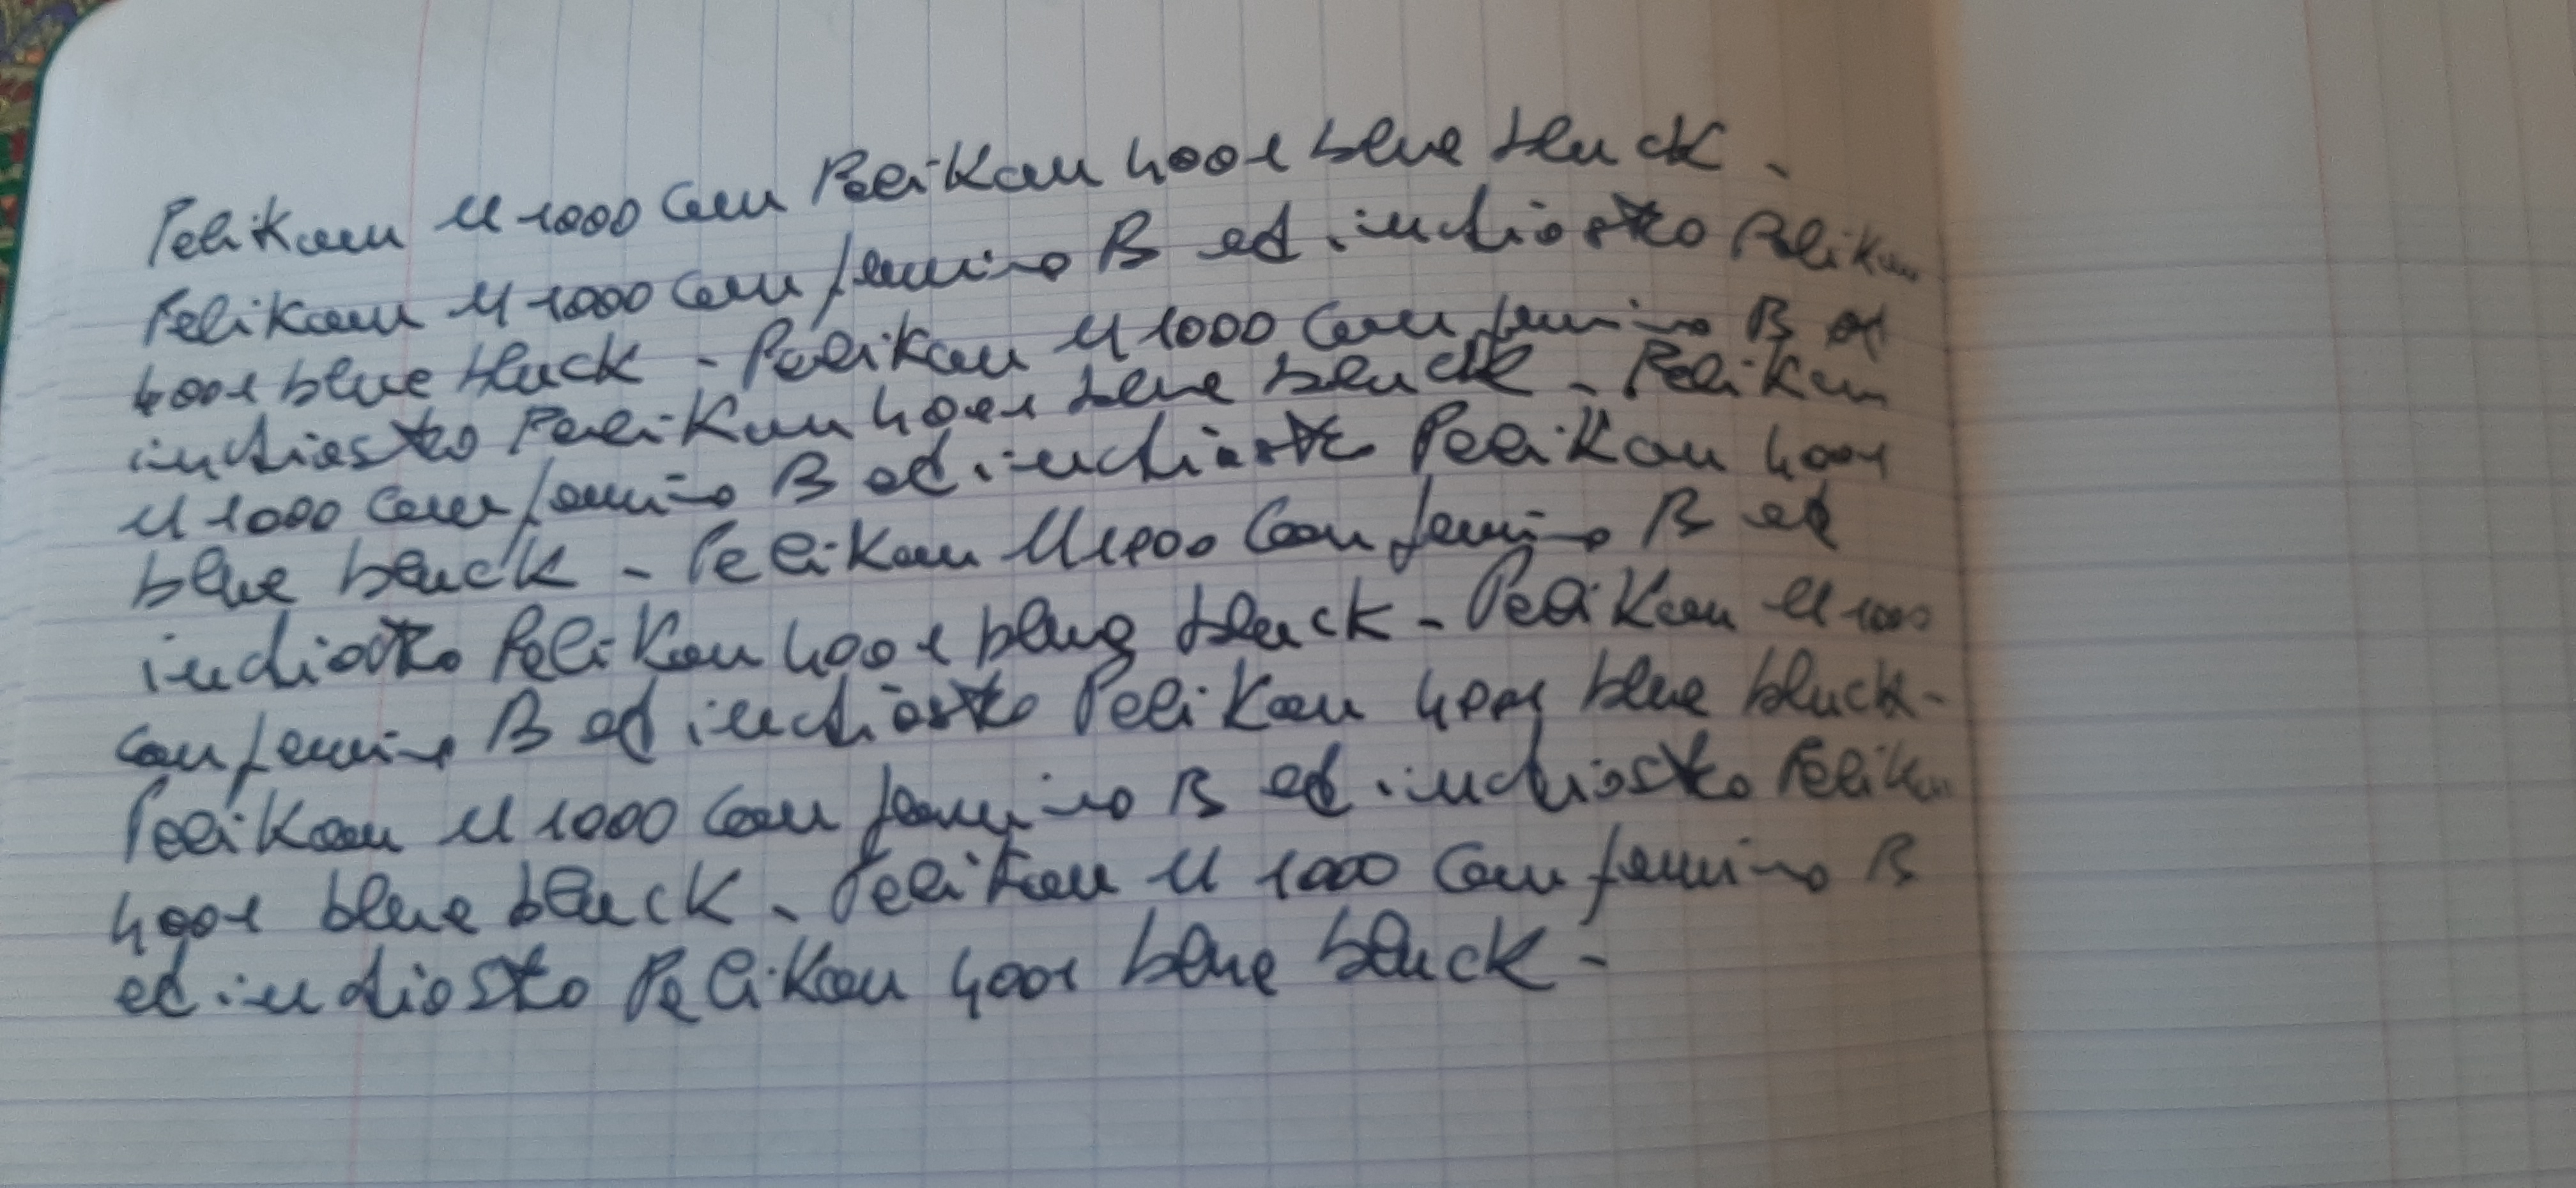 Pelikan M 1000 con Pelikan 4001 blue black.
Pelikan M 1000 con pennino B ed inchiostro Pelikan
4001 blue black - Pelikan M 1000 con pennino B ed
inchiostro Pelikan 4001 blue black - Pelikan
M 1000 con pennino B ed inchiostro Pelikan 4001
blue black - Pelikan M 1000 con pennino B ed
inchiostro Pelikan 4001 blue black - Pelikan M 1000
con pennino B ed inchiostro Pelikan 4001 blue black -
Pelikan M 1000 con pennino B ed inchiostro Pelikan
4001 blue black - Pelikan M 1000 con pennino B
ed inchiostro Pelikan 4001 blue black -